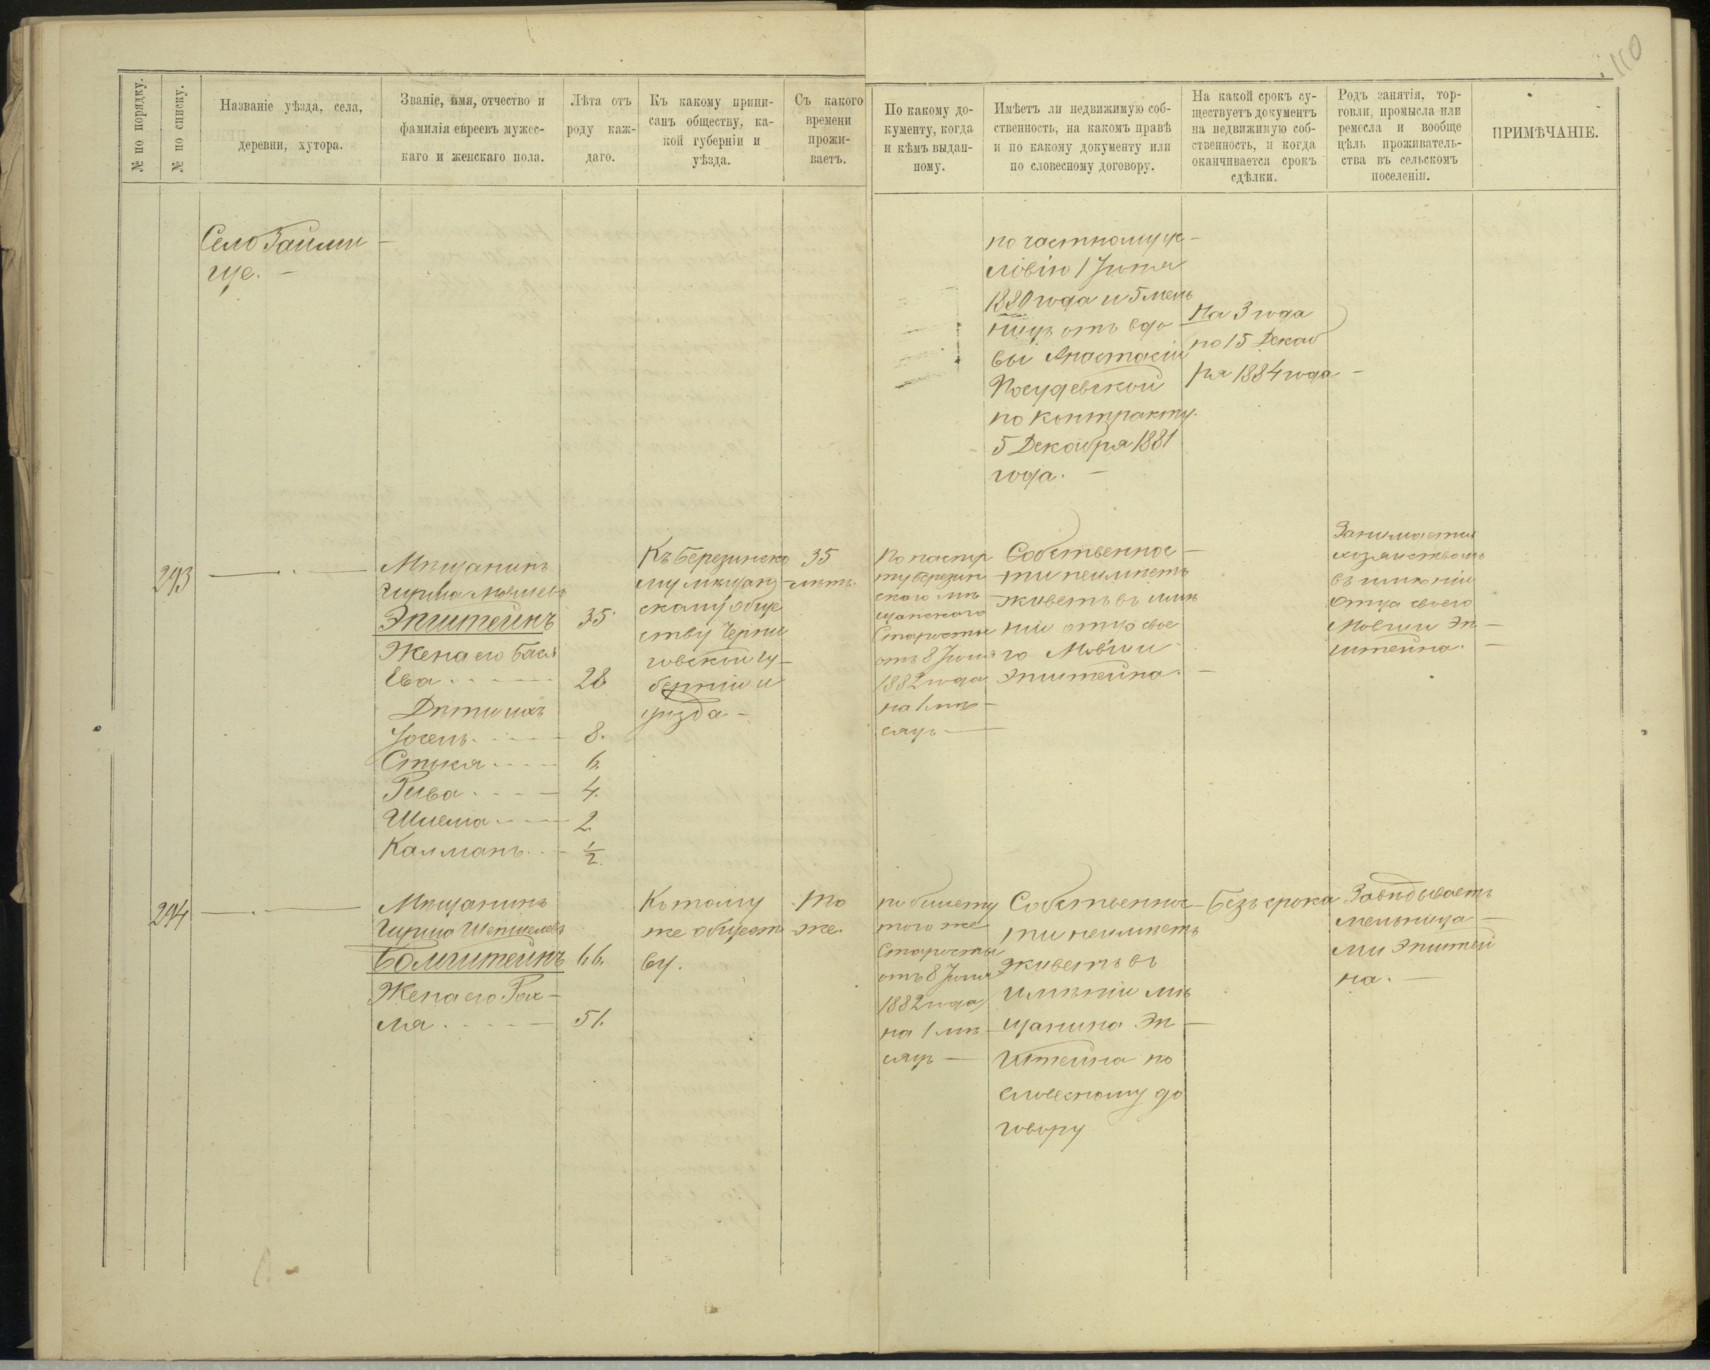 110
№ по порядку.
№ по списку.
Названіе уѣзда, села,
деревни, хутора.
Званіе, имя, отчество и
фамилія евреевъ мужес-
каго и женскаго пола.
Лѣта отъ
роду каж-
даго.
Къ какому припи-
санъ обществу, ка-
кой губерніи и
уѣзда.
Съ какого
времени
прожи-
ваетъ.
По какому до-
кументу, когда
и кѣмъ выдан-
ному.
Имѣетъ ли недвижимую соб-
ственность, на какомъ правѣ
и по какому документу или
по словесному договору.
На какой срокъ су-
ществуетъ документъ
на недвижимую соб-
ственность, и когда
оканчивается срокъ
сдѣлки.
Родъ занятія, тор-
говли, промысла или
ремесла и вообще
цѣль проживатель-
ства въ сельскомъ
поселеніи.
ПРИМѢЧАНІЕ.
Село
ще. —
по частному ус-
ловію 1 Іюня
1880 года и 5 мель
ницъ отъ вдо
вы Анастасіи
по контракту
5 Декабря 1881
года. —
На 3 года
по 15 Декаб
ря 1884 года —
293
Мѣщанинъ
Гирша
Эпштейнъ
35
Жена его Бася
Ева
28
Дѣти ихъ
Іосель
8.
Стыся
6.
Рива
4.
Шлема
2
Калманъ
1/2
Къ Березинско
му мѣщан-
скому обще
ству Черни
говской гу-
берніи и
уѣзда —
35
лѣтъ.
По паспор
ту Березин
ского мѣ
щанского
Старосты
отъ 8 Іюля
1882 года
на 1 мѣ-
сяцъ —
Собственнос-
ти не имѣетъ
живетъ въ имѣ
ніи отца свое
го Мовши
Эпштейна. —
Занимается
хозяйствомъ
въ имѣніи
отца своего
Мовши Эп-
штейна. —
294
Мѣщанинъ
Гирша
66.
Жена его Рах-
ля
51.
Къ тому
же общест
ву.
То
же.
по билету
того же
Старосты
отъ 8 Іюля
1882 года
на 1 мѣ-
сяцъ —
Собственнос-
ти не имѣетъ
живетъ въ
имѣніи мѣ
щанина Эп-
штейна по
словесному до
говору
Безъ срока
Завѣдываетъ
мельница-
ми Эпштей
на. —